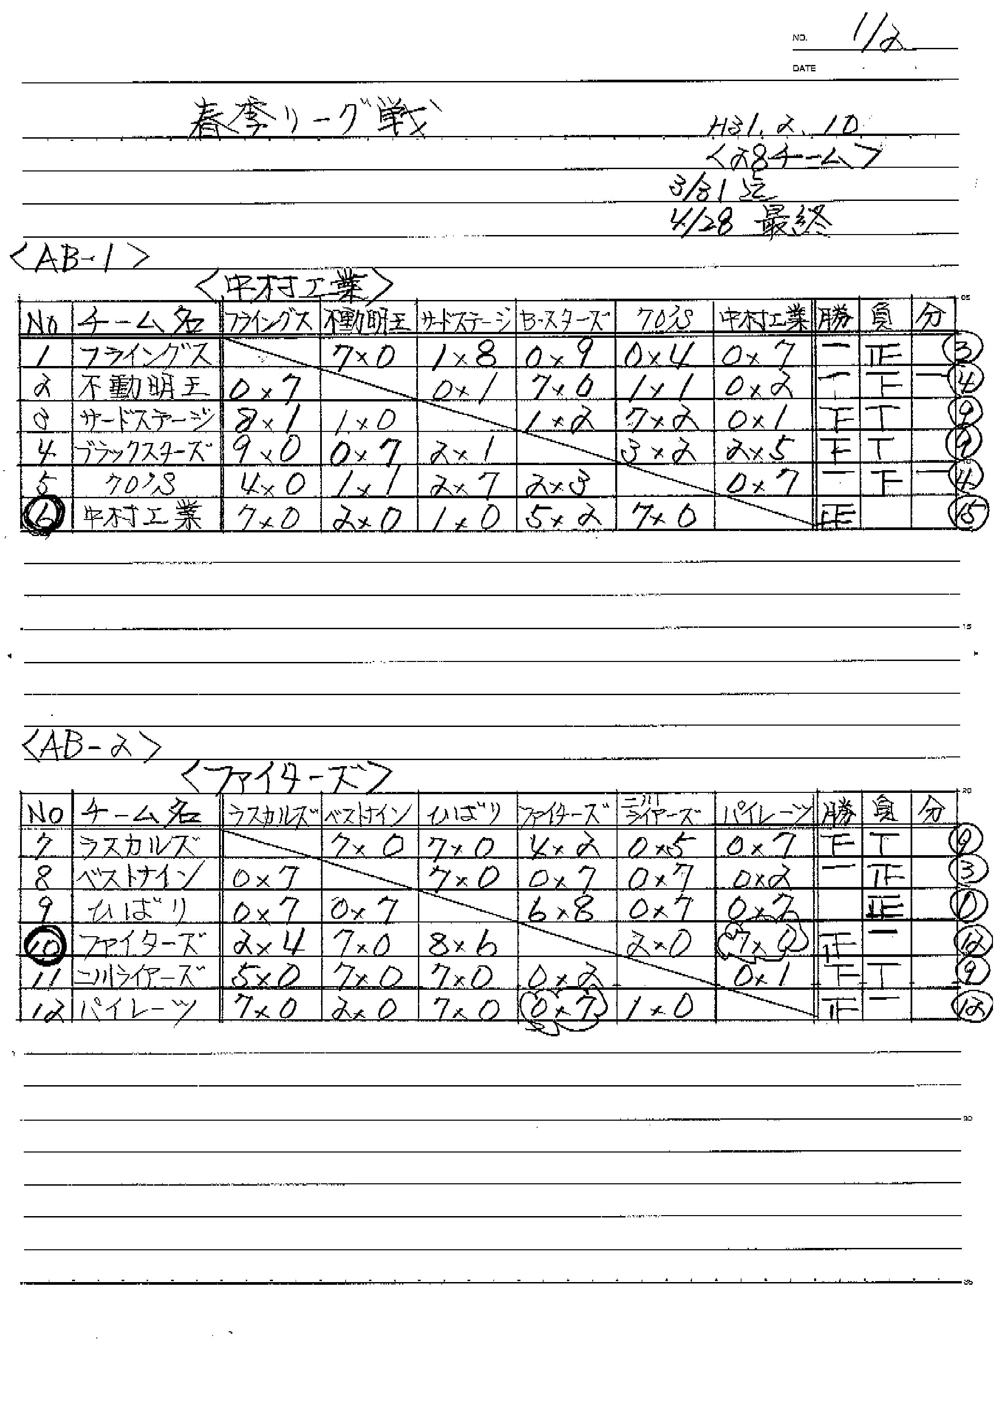 NO. 1/2
DATE
春季リーグ戦
H31.2.10
<28チーム>
3/31迄
4/28 最終
<AB-1>
<中村工業>
No チーム名 フライングス 不動明王 サードステージ B-スターズ 70'S 中村工業 勝 負 分
1 フライングス 7×0 1×8 0×9 0×4 0×7 一 正 3
2 不動明王 0×7 0×1 7×0 1×1 0×2 一 下 一 4
3 サードステージ 8×1 1×0 1×2 7×2 0×1 下 T 9
4 ブラックスターズ 9×0 0×7 2×1 3×2 2×5 下 T 9
5 70'S 4×0 1×1 2×7 2×3 0×7 一 下 一 4
6 中村工業 7×0 2×0 1×0 5×2 7×0 正 15
<AB-2>
<ファイターズ>
NO チーム名 ラスカルズ ベストナイン ひばり ファイターズ 二川ライヤーズ パイレーツ 勝 負 分
7 ラスカルズ 7×0 7×0 4×2 0×5 0×7 下 T 9
8 ベストナイン 0×7 7×0 0×7 0×7 0×2 一 正 3
9 ひばり 0×7 0×7 6×8 0×7 0×7 正 0
10 ファイターズ 2×4 7×0 8×6 2×0 7×0 正 一 12
11 二川ライヤーズ 5×0 7×0 7×0 0×2 0×1 下 T 9
12 パイレーツ 7×0 2×0 7×0 0×7 1×0 正 一 12